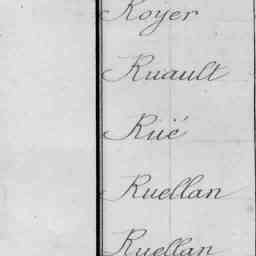 Royer
Ruault
Rüé
Ruellan
Ruellan